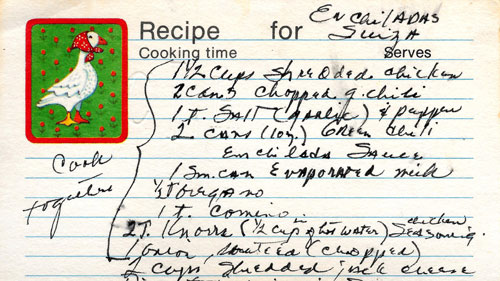 Recipe for Enchiladas
Suiza
Cooking time Serves
1 1/2 cups shredded chicken
2 cans chopped g. chili
1 t. salt (garlic) & pepper
2 cans (10 oz.) Green chili
Enchilada Sauce
1 sm. can Evaporated milk
1/2 t oregano
1 t. Comino
2 T. Knorrs (1/2 cup in hot water) chicken seasoning
1 onion, sauteed (chopped)
2 cups shredded jack cheese
Cook
together